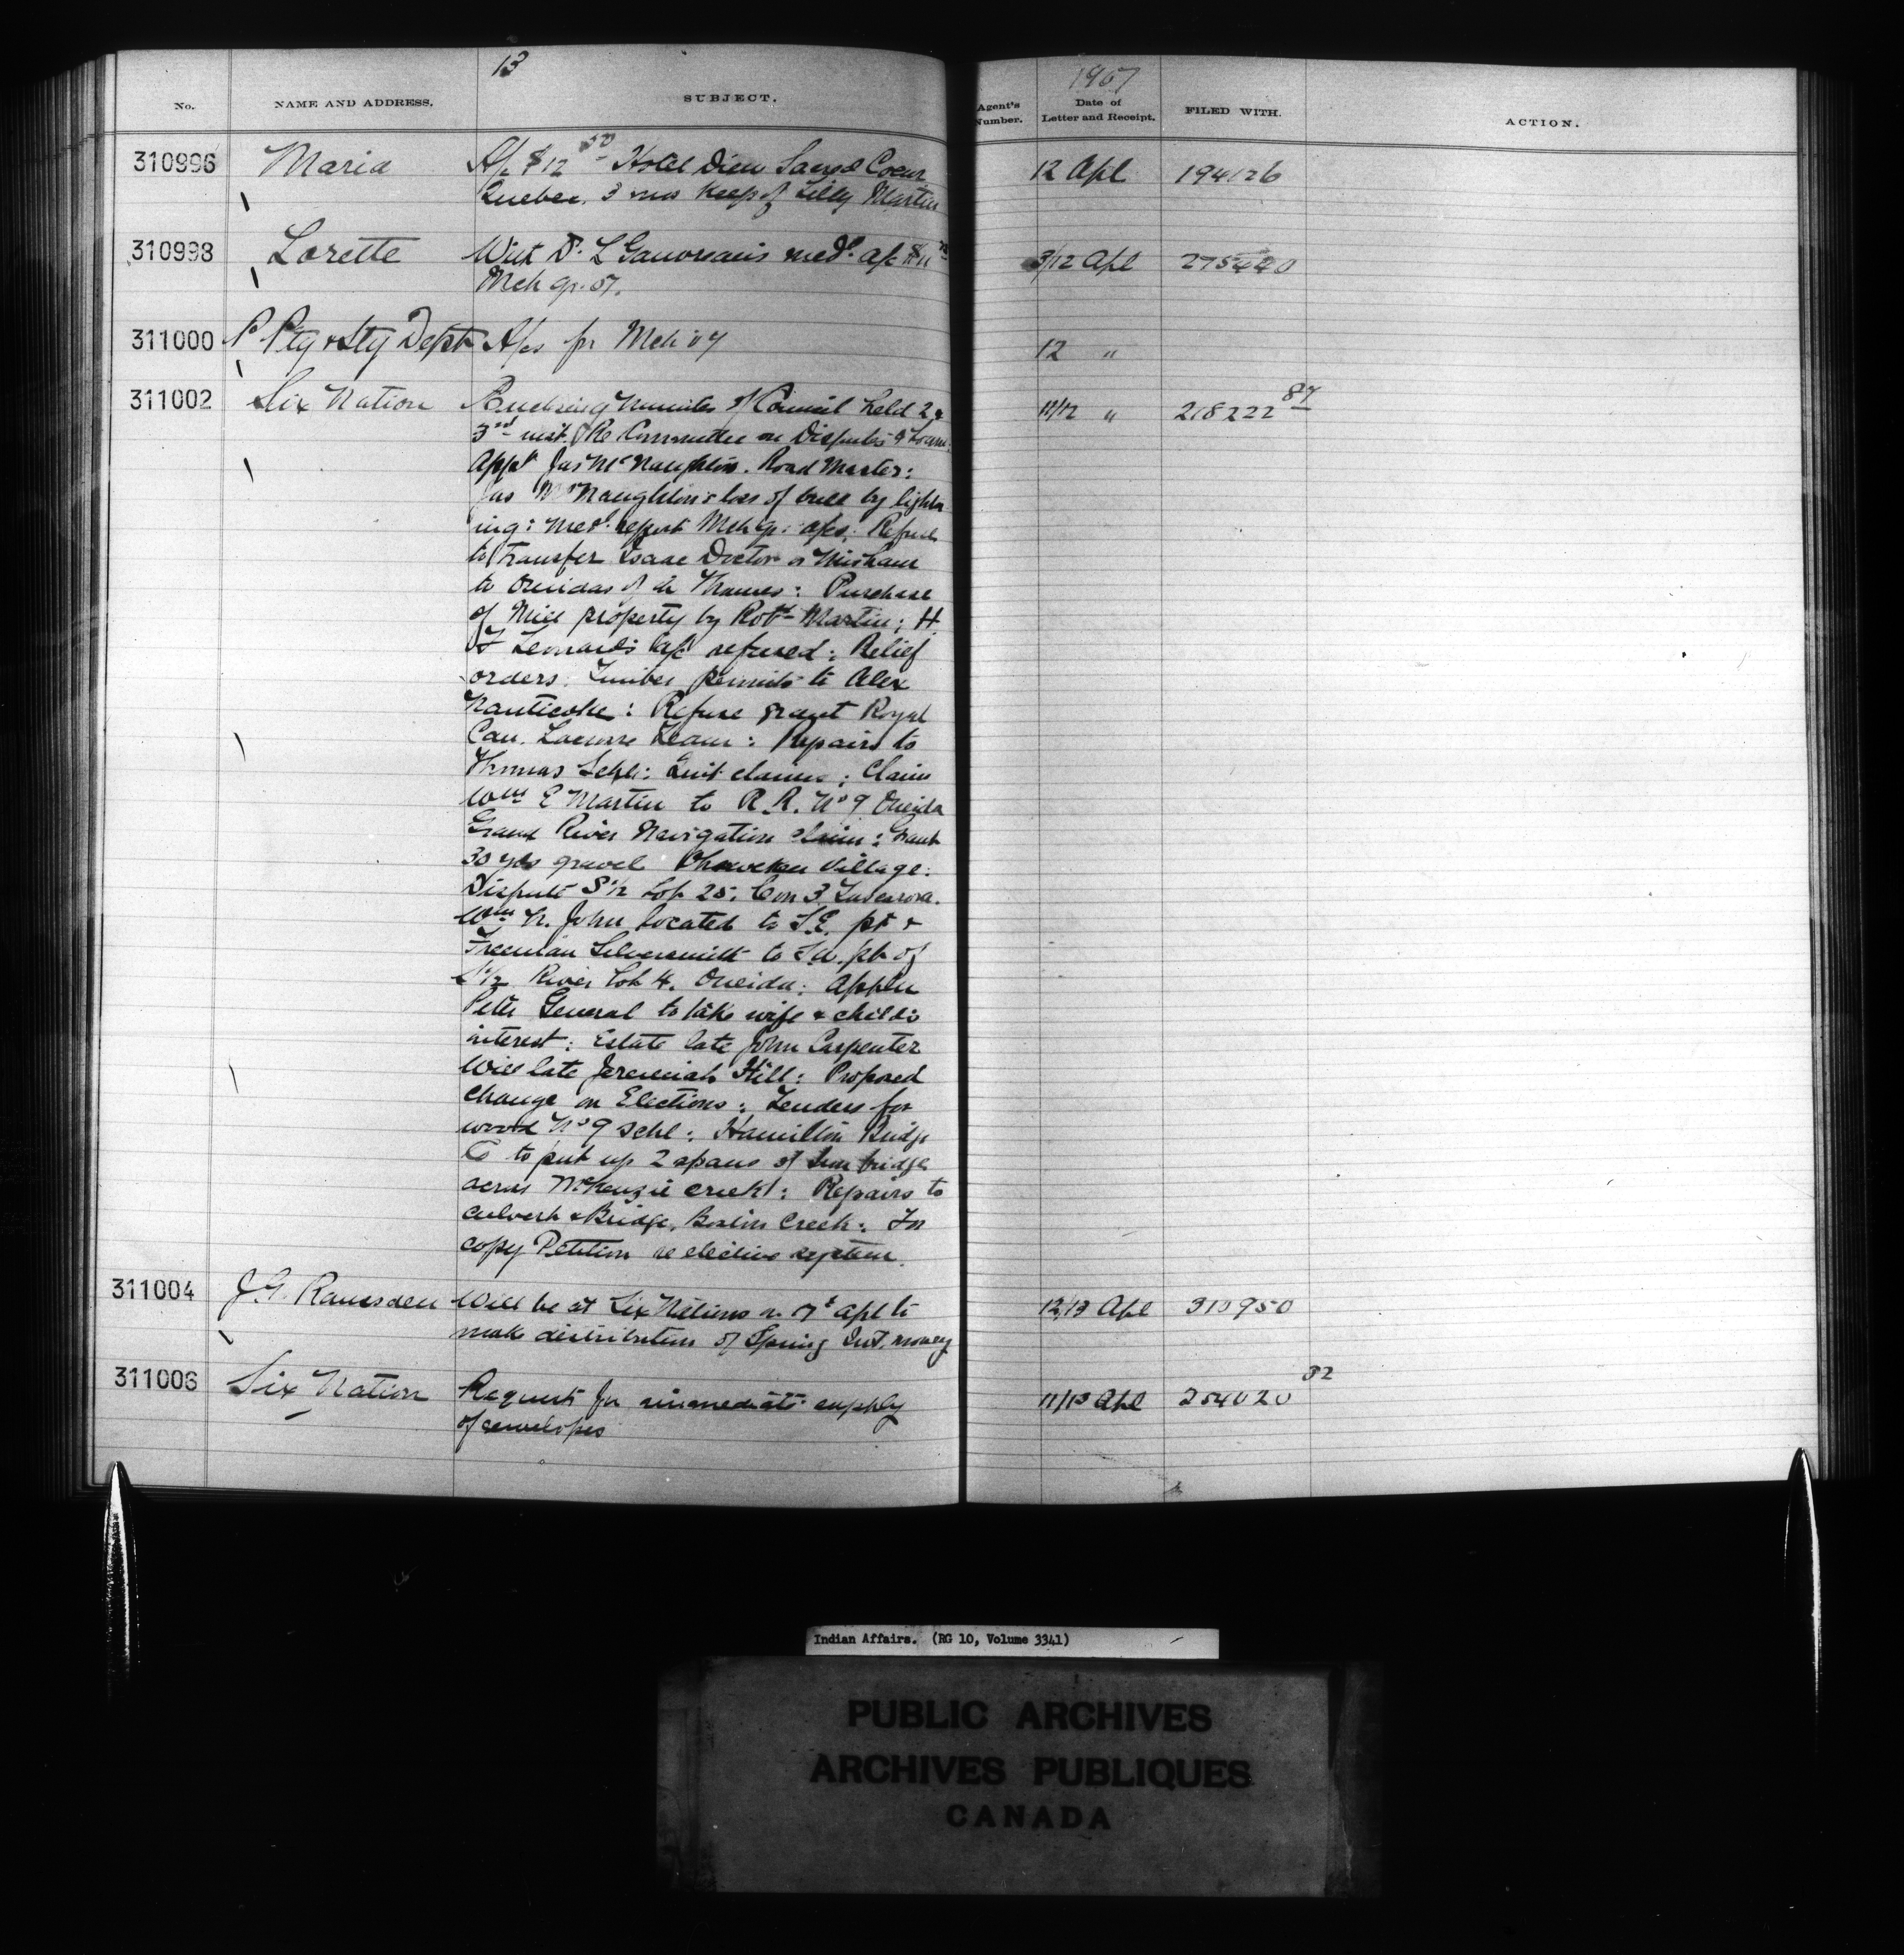 13
1907
No.
NAME AND ADDRESS.
SUBJECT.
Agent's Number.
Date of Letter and Receipt.
FILED WITH.
ACTION.
310996 Maria A/c $12 50 Hotel Dieu Sacred Coeur 12 Apl 194126
Quebec, 3 mos keep of Lilly Martin
310998 Lorette With Dr. L medl a/c $11 3/12 Apl 275440
Mch qr. 07.
311000 P Ptg & Sty Dept A/cs for Mch 07 12 "
311002 Six Nation minutes of Council held 2 & 11/12 " 218222 87
3rd inst. Re Committee on Disputes & Loans.
Appt Jas McNaughton. Road Master:
Jas McNaughton's loss of by lightn
ing: Medl report Mch qr: a/cs: Refuse
to transfer Isaac Doctor
to Oneidas of the Thames: Purchase
of Mill property by Robt Martin; H
F Leonard's a/c refused: Relief
orders: Timber permits to Alex
Nanticoke: Refuse grant Royal
Can. Lacrosse Team: Repairs to
Thomas Schl: Quit claims: Claim
Wm E Martin to R.R. No 9 Oneida
Grand River Navigation claim: Grant
30 yds gravel Ohsweken Village:
Dispute S 1/2 Lot 25: Con 3 Tuscarora.
Wm N. John located to S.E. pt &
Freeman Silversmith to S.W. pt of
S 1/2 River Lot 4. Oneida: Appln
Peter General to take wife & child's
interest: Estate late John Carpenter
Will late Jeremiah Hill: Proposed
change on Elections: Tenders for
wood No 9 Schl: Hamilton Bridge
Co to put up 2 spans of iron bridge
across McKenzie Creek: Repairs to
culvert & Bridge, Boston Creek: For
copy Petition re elective system.
311004 J.G. Ramsden Will be at Six Nations on Apl to 12/13 Apl 310950
make distribution of Spring Int. money
311006 Six Nation Request for immediate supply 11/13 Apl 254020 32
of envelopes
Indian Affairs. (RG 10, Volume 3341)
PUBLIC ARCHIVES
ARCHIVES PUBLIQUES
CANADA